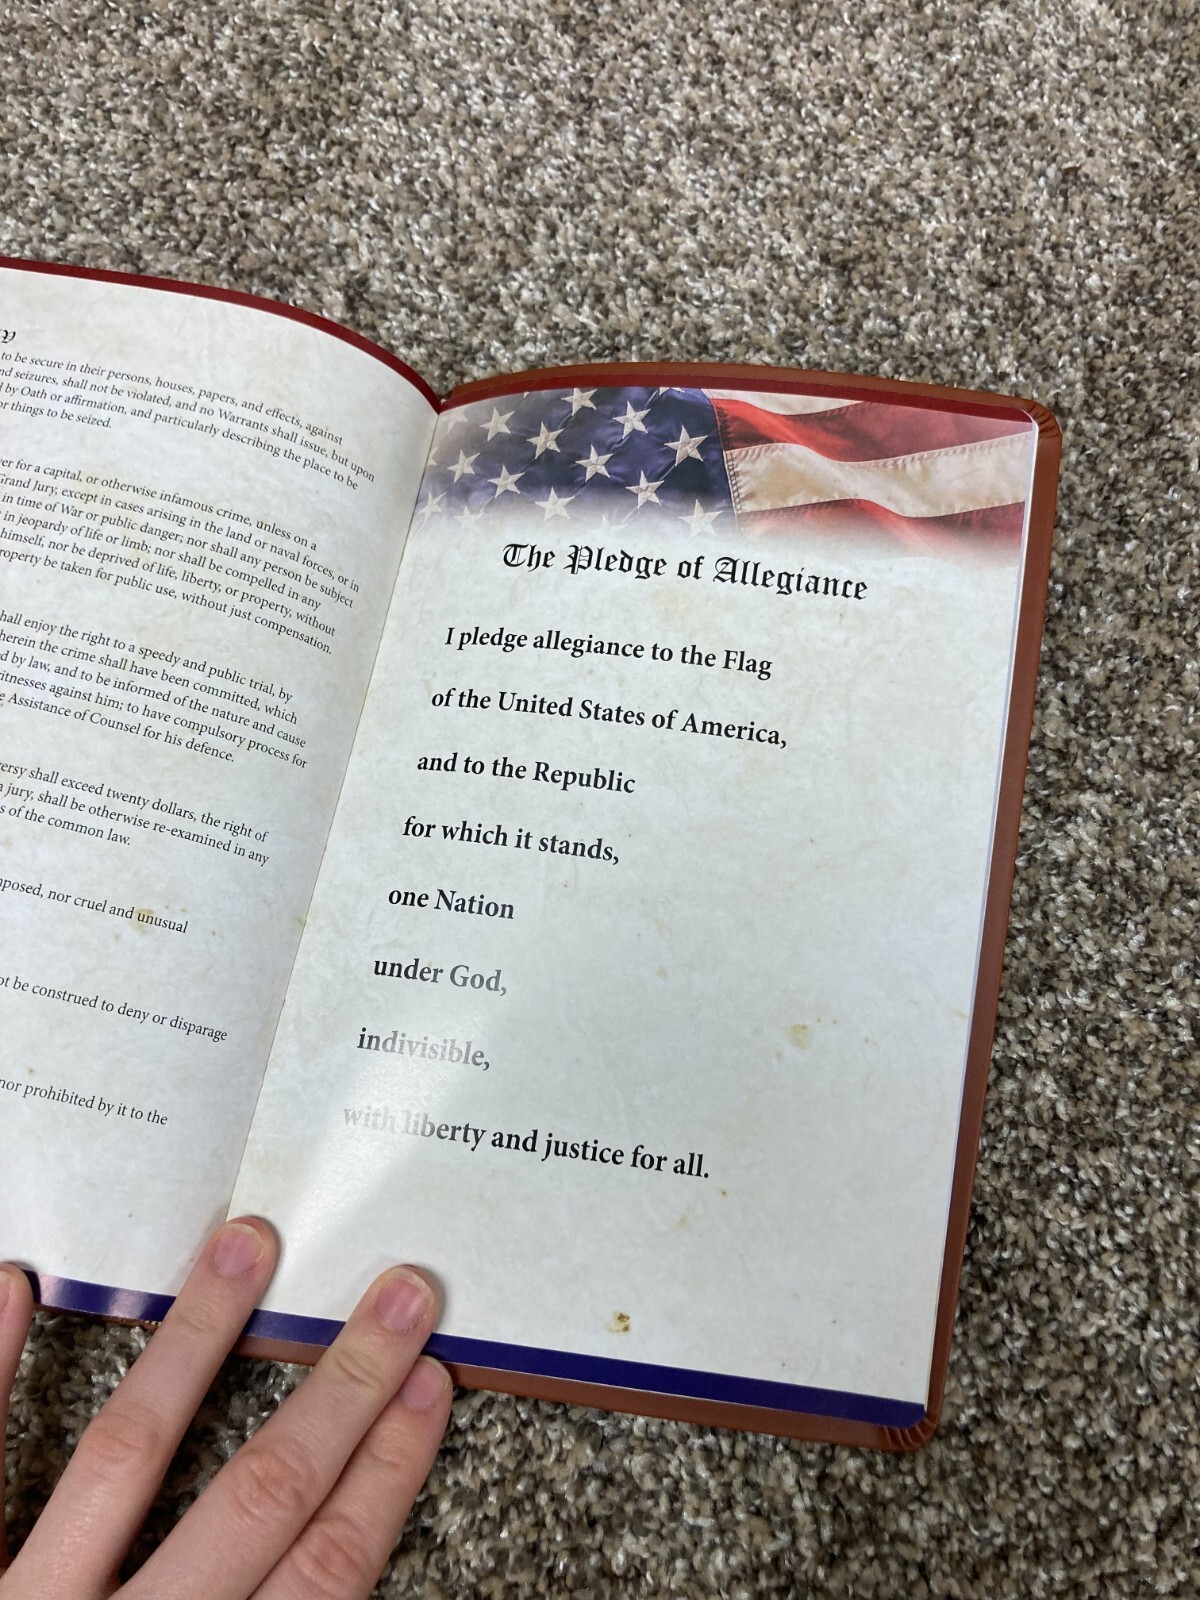 to be secure in their persons, houses, papers, and effects, against
nd seizures, shall not be violated, and no Warrants shall issue, but upon
d by Oath or affirmation, and particularly describing the place to be
or things to be seized.
er for a capital, or otherwise infamous crime, unless on a
Grand Jury, except in cases arising in the land or naval forces, or in
in time of War or public danger; nor shall any person be subject
in jeopardy of life or limb; nor shall be compelled in any
himself, nor be deprived of life, liberty, or property, without
roperty be taken for public use, without just compensation.
hall enjoy the right to a speedy and public trial, by
herein the crime shall have been committed, which
d by law, and to be informed of the nature and cause
itnesses against him; to have compulsory process for
e Assistance of Counsel for his defence.
ersy shall exceed twenty dollars, the right of
jury, shall be otherwise re-examined in any
s of the common law.
posed, nor cruel and unusual
ot be construed to deny or disparage
nor prohibited by it to the
The Pledge of Allegiance
I pledge allegiance to the Flag
of the United States of America,
and to the Republic
for which it stands,
one Nation
under God,
indivisible,
with liberty and justice for all.